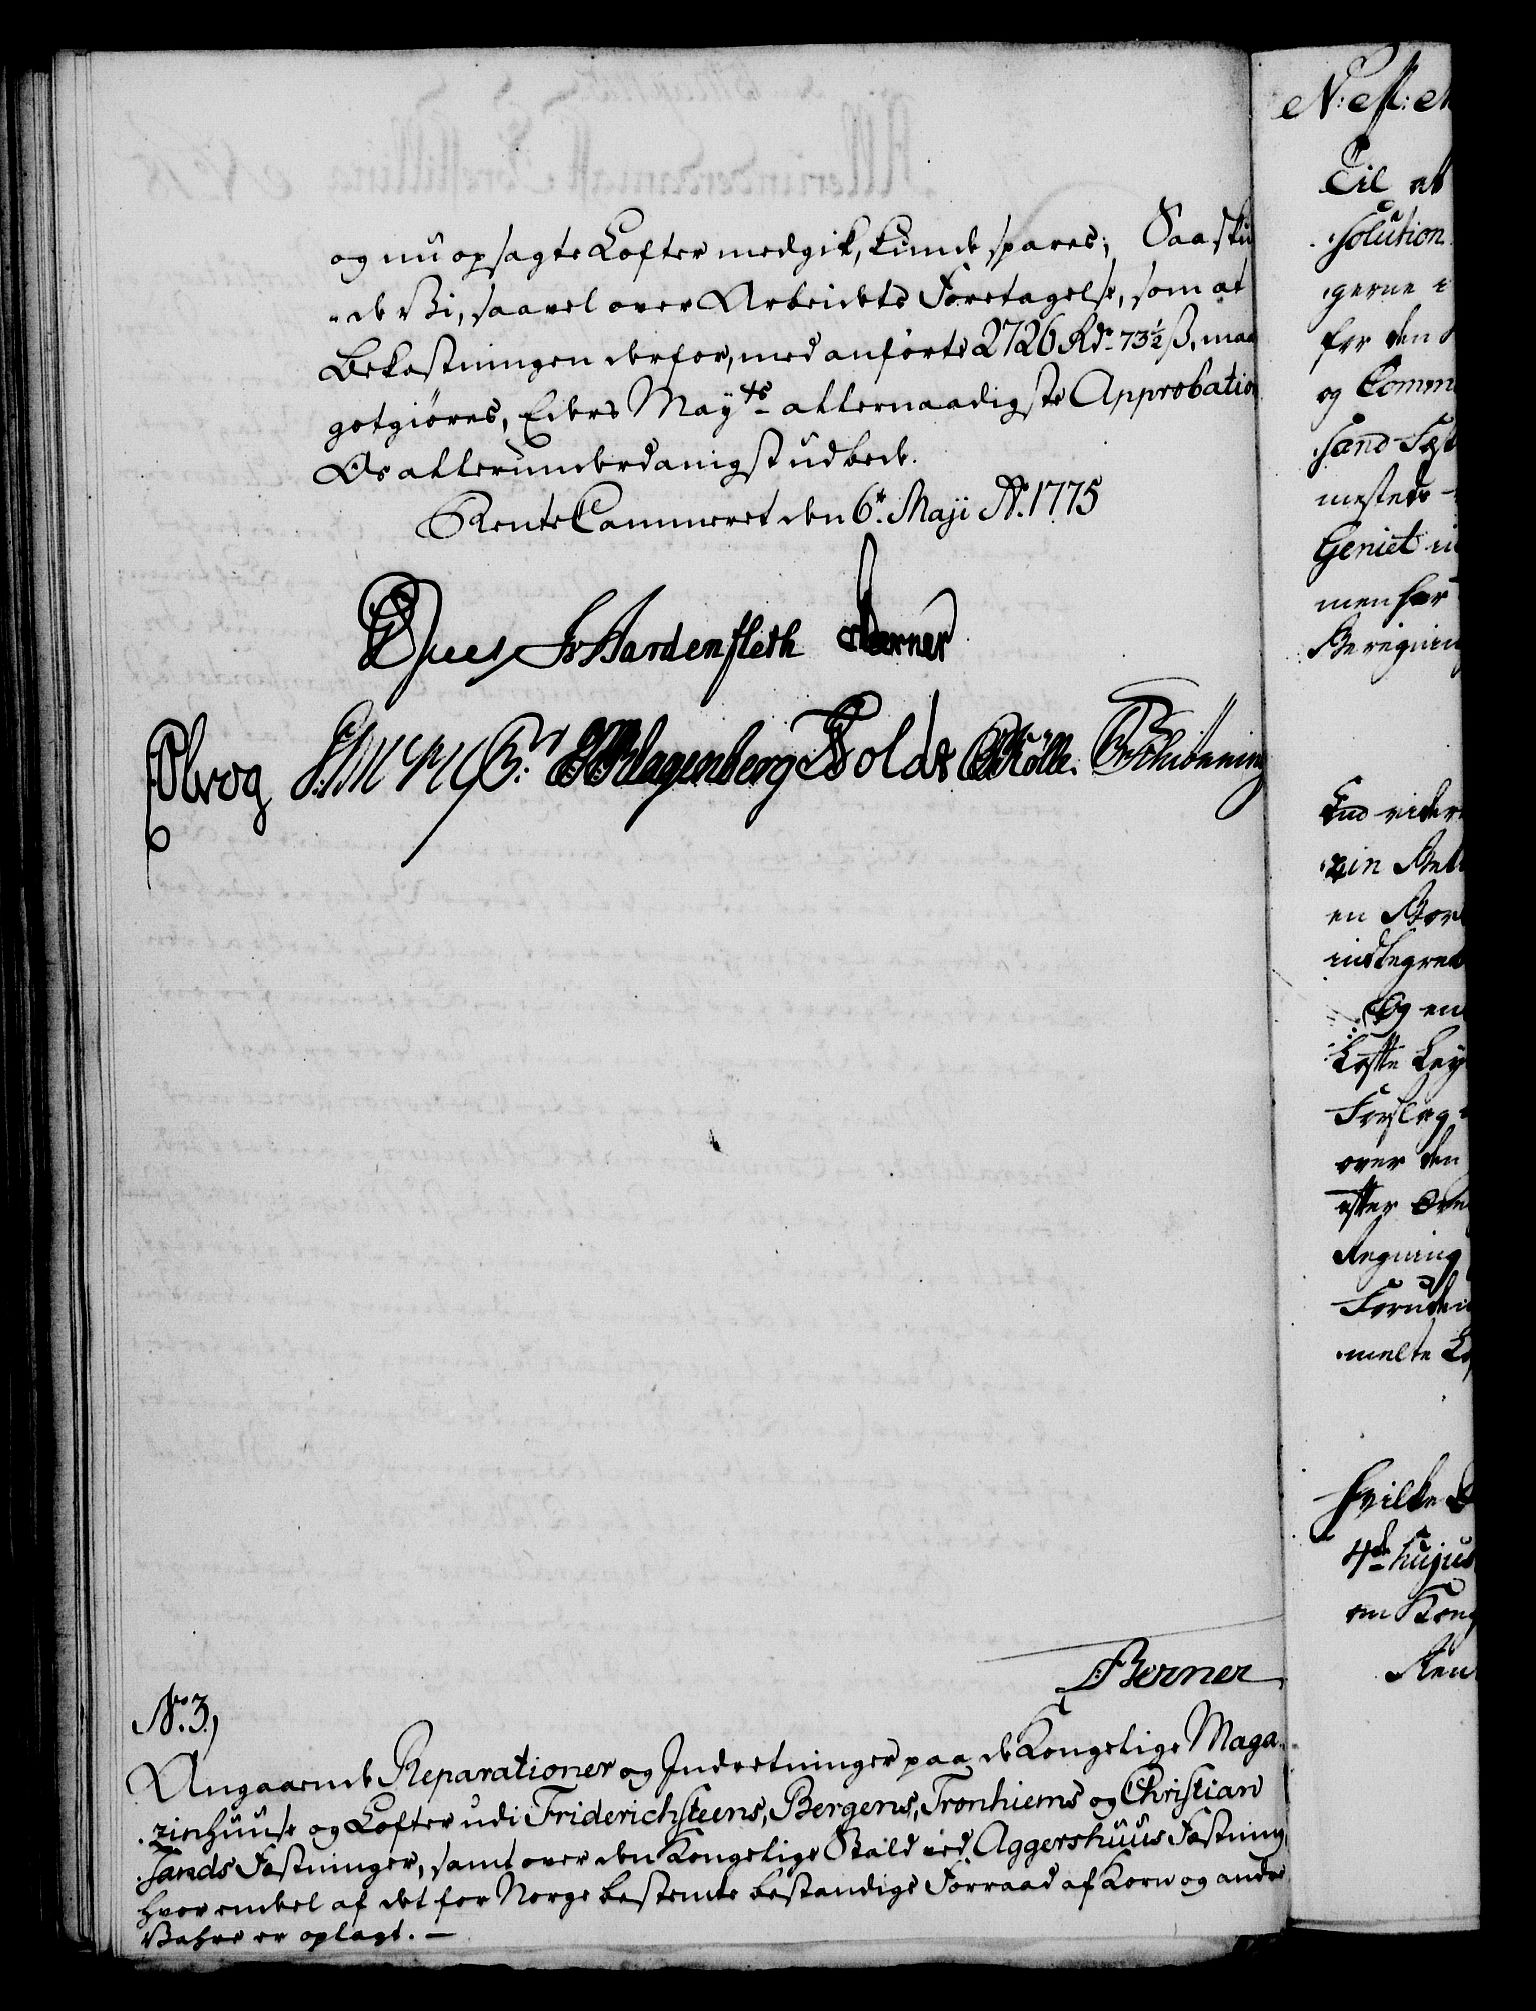 og nu opsagte Lofter medgik, kunde spares; Saa sku
-de Vi, saavel over Arbeidets Foretagelse, som at
Bekostningen derfor, med anførte 2726 Rdr 73½ ß, maa
gotgiøres, Eders Mayts allernaadigste Approbation
Os allerunderdanigst udbede.
RenteCammeret den 6te Maji Ao. 1775
Juel Hardenfleth Berner
Olrog Klagenberg Holdt Møller Schiønning
Berner
No. 3,)
Angaaende Reparationer og Indretninger paa de Kongelige Maga-
-zinhuuse og Lofter udi Friderichsteens, Bergens, Tronhiems og Christian
-sands Fæstninger, samt over den Kongelige Stald ved Aggershuus Fæstning,
hvor endeel af det for Norge bestemte bestandige Forraad af Korn og andre
Vahre er oplagt. —
Til at
solution
gerne i
for den
og Comm
sand Fæst
mesteds
Geniet
men har
Beregning
End videre
zin
en
indbegre
Og en
Lofte Ley
Forslag
over den
efter
Regning
Foruden
melte
hvilke
4de hujus
om Kong
Ren